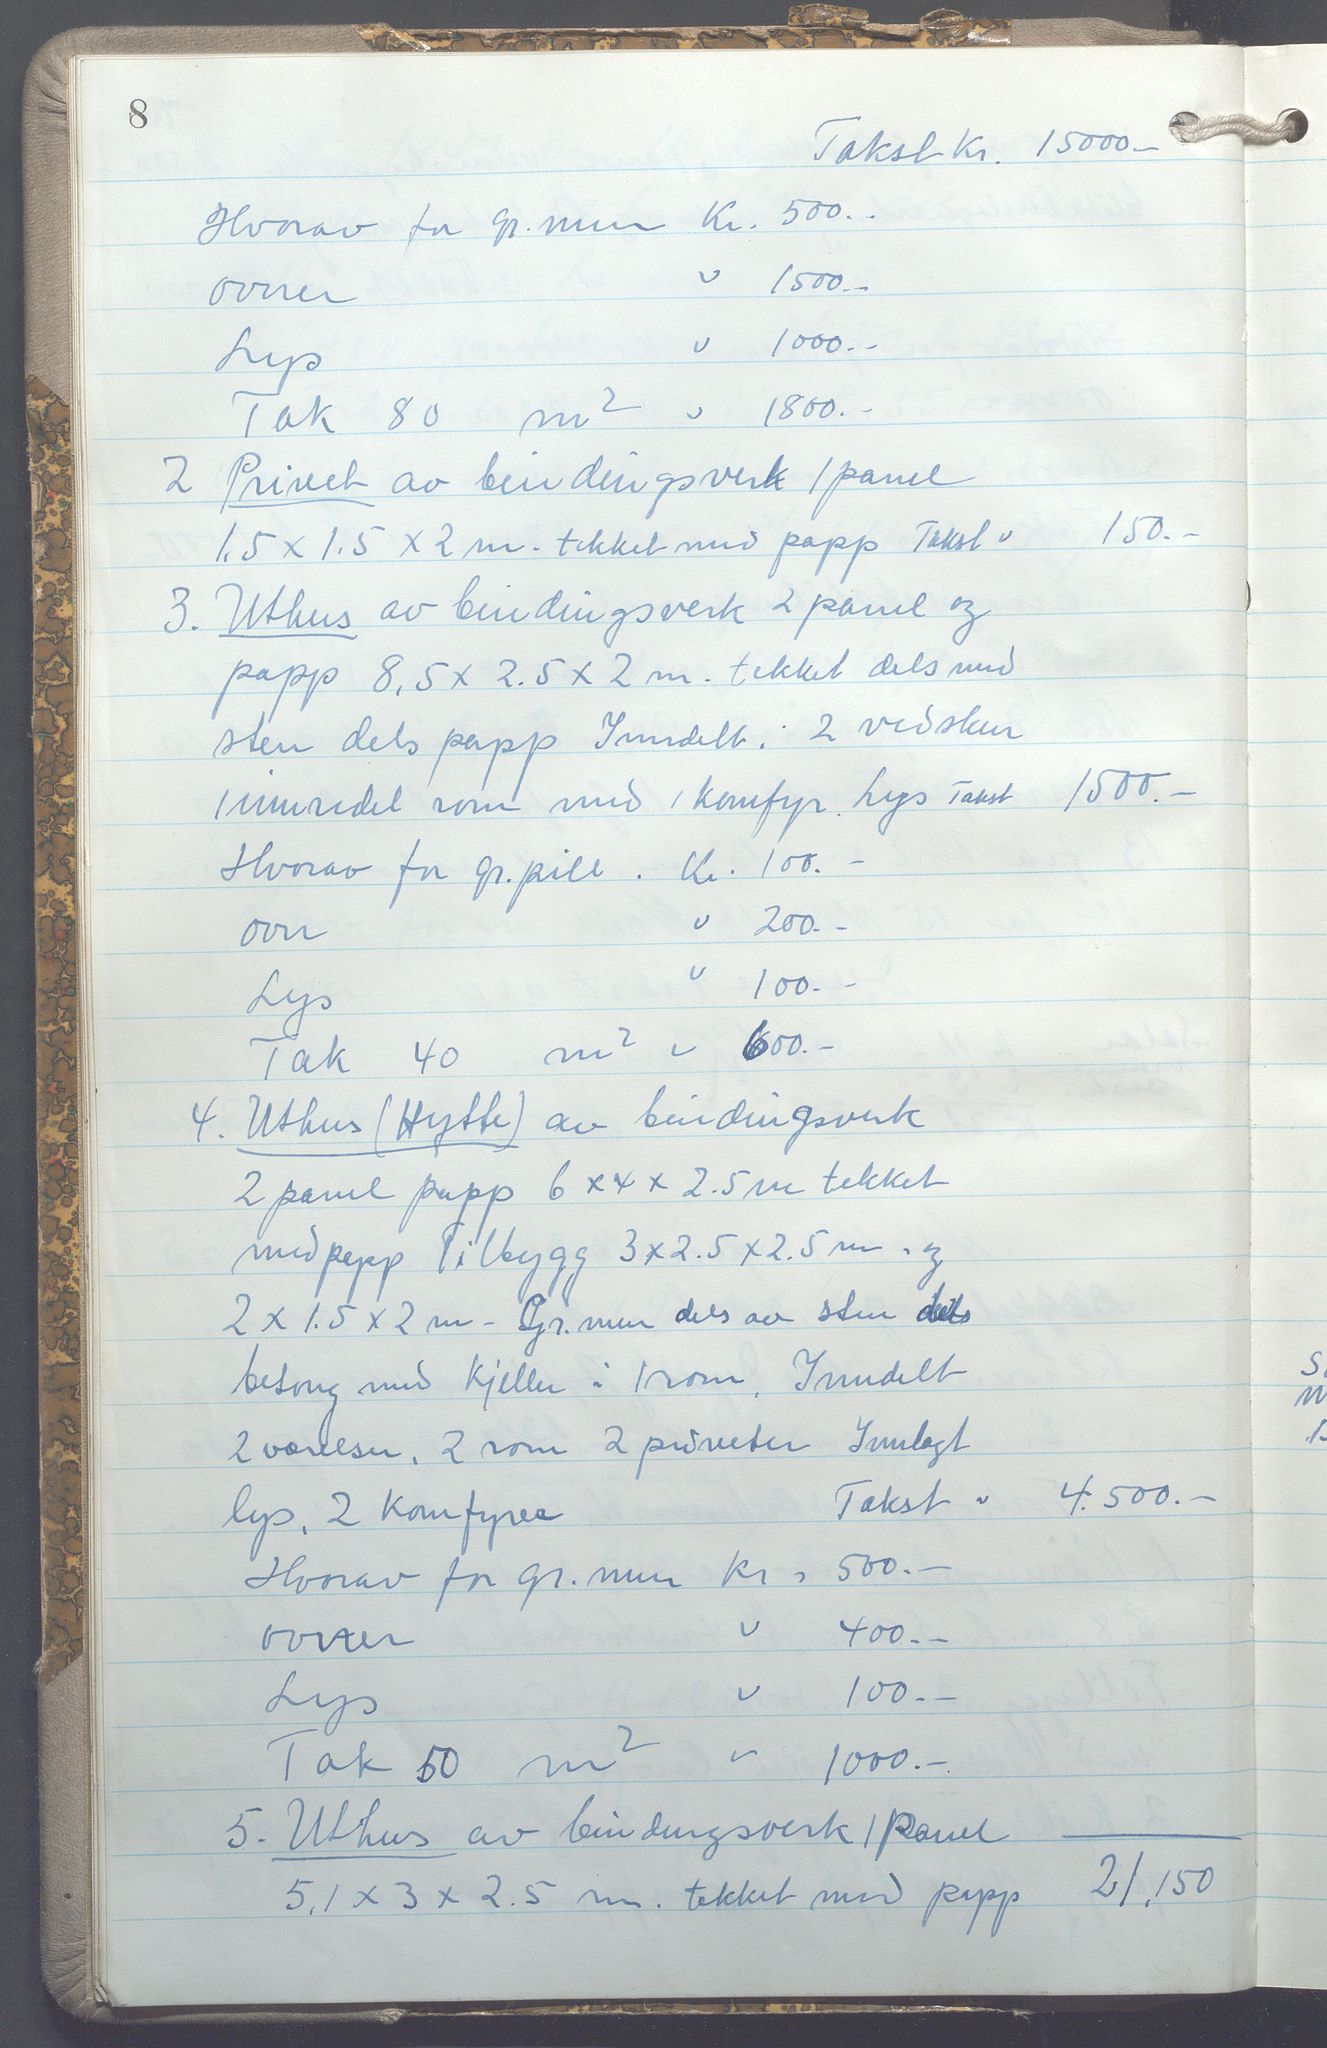 8
Takst Kr. 15000.-
Hvorav for gr. mur Kr. 500.-
ovner " 1500.-
Lys " 1000.-
Tak 80 m² " 1800.-
2 Privet av bindingsverk 1 panel
1.5 x 1.5 x 2 m. tekket med papp Takst " 150.-
3. Uthus av bindingsverk 2 panel og
papp 8,5 x 2.5 x 2 m. tekket dels med
sten dels papp Inndelt i 2 vedskur
1 innredet rom med 1 komfyr. Lys Takst 1500.-
Hvorav for gr. pill. Kr. 100.-
ovn " 200.-
Lys " 100.-
Tak 40 m² " 600.-
4. Uthus (Hytte) av bindingsverk
2 panel papp 6 x 4 x 2.5 m tekket
med papp Tilbygg 3 x 2.5 x 2.5 m. og
2 x 1.5 x 2 m - Gr. mur dels av sten dels
betong med Kjeller i 1 rom. Inndelt
2 værelser, 2 rom 2 priveter Innlagt
lys, 2 Komfyrer Takst " 4.500.-
Hvorav for gr. mur Kr. 500.-
ovner " 400.-
Lys " 100.-
Tak 50 m² " 1000.-
5. Uthus av bindingsverk 1 Panel
5,1 x 3 x 2.5 m. tekket med papp 21,150